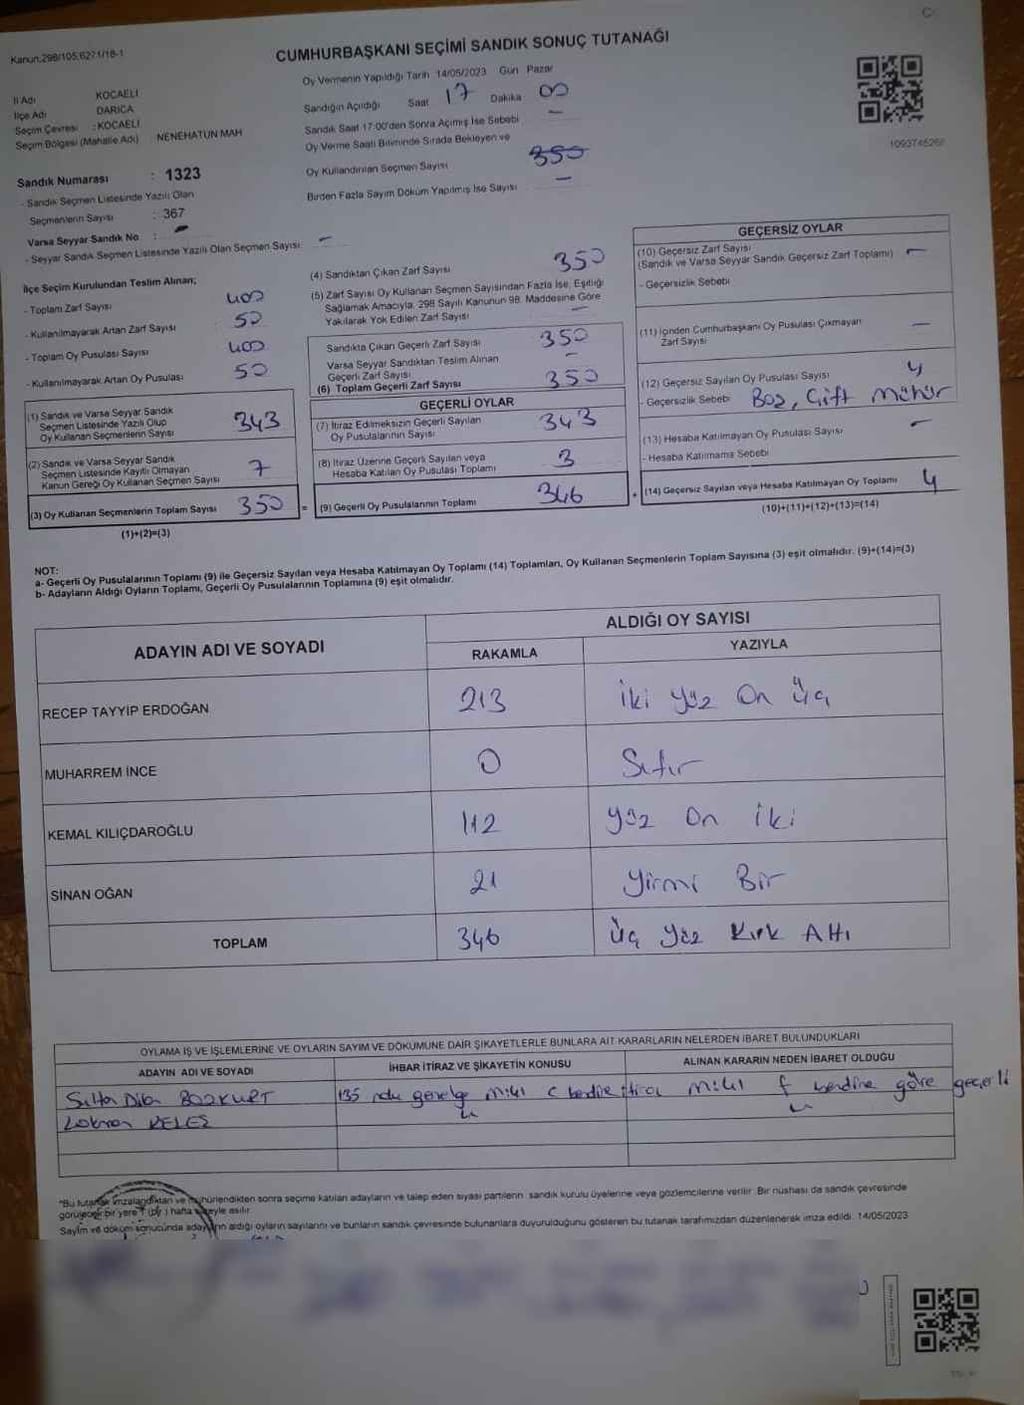 Kanun:298/105;6271/18-1
CUMHURBAŞKANI SEÇİMİ SANDIK SONUÇ TUTANAĞI
İl Adı KOCAELİ
İlçe Adı DARICA
Seçim Çevresi : KOCAELİ
Seçim Bölgesi (Mahalle Adı) NENEHATUN MAH
Oy Vermenin Yapıldığı Tarih 14/05/2023 Gün Pazar
Sandığın Açıldığı Saat 17 Dakika 00
Sandık Saat 17:00'den Sonra Açılmış İse Sebebi —
Oy Verme Saati Bitiminde Sırada Bekleyen ve
Oy Kullandırılan Seçmen Sayısı 350
Birden Fazla Sayım Döküm Yapılmış İse Sayısı —
Sandık Numarası : 1323
- Sandık Seçmen Listesinde Yazılı Olan
Seçmenlerin Sayısı : 367
Varsa Seyyar Sandık No :
- Seyyar Sandık Seçmen Listesinde Yazılı Olan Seçmen Sayısı: —
İlçe Seçim Kurulundan Teslim Alınan;
- Toplam Zarf Sayısı 400
- Kullanılmayarak Artan Zarf Sayısı 50
- Toplam Oy Pusulası Sayısı 400
- Kullanılmayarak Artan Oy Pusulası 50
(1) Sandık ve Varsa Seyyar Sandık
Seçmen Listesinde Yazılı Olup
Oy Kullanan Seçmenlerin Sayısı 343
(2) Sandık ve Varsa Seyyar Sandık
Seçmen Listesinde Kayıtlı Olmayan
Kanun Gereği Oy Kullanan Seçmen Sayısı 7
(3) Oy Kullanan Seçmenlerin Toplam Sayısı 350 =
(1)+(2)=(3)
(4) Sandıktan Çıkan Zarf Sayısı 350
(5) Zarf Sayısı Oy Kullanan Seçmen Sayısından Fazla İse, Eşitliği
Sağlamak Amacıyla, 298 Sayılı Kanunun 98. Maddesine Göre
Yakılarak Yok Edilen Zarf Sayısı —
Sandıkta Çıkan Geçerli Zarf Sayısı 350
Varsa Seyyar Sandıktan Teslim Alınan
Geçerli Zarf Sayısı —
(6) Toplam Geçerli Zarf Sayısı 350
GEÇERLİ OYLAR
(7) İtiraz Edilmeksizin Geçerli Sayılan
Oy Pusulalarının Sayısı 343
(8) İtiraz Üzerine Geçerli Sayılan veya
Hesaba Katılan Oy Pusulası Toplamı 3
(9) Geçerli Oy Pusulalarının Toplamı 346 +
GEÇERSİZ OYLAR
(10) Geçersiz Zarf Sayısı
(Sandık ve Varsa Seyyar Sandık Geçersiz Zarf Toplamı) —
- Geçersizlik Sebebi
(11) İçinden Cumhurbaşkanı Oy Pusulası Çıkmayan
Zarf Sayısı —
(12) Geçersiz Sayılan Oy Pusulası Sayısı 4
- Geçersizlik Sebebi Boş, Çift Mühür
(13) Hesaba Katılmayan Oy Pusulası Sayısı —
- Hesaba Katılmama Sebebi
(14) Geçersiz Sayılan veya Hesaba Katılmayan Oy Toplamı 4
(10)+(11)+(12)+(13)=(14)
NOT:
a- Geçerli Oy Pusulalarının Toplamı (9) ile Geçersiz Sayılan veya Hesaba Katılmayan Oy Toplamı (14) Toplamları, Oy Kullanan Seçmenlerin Toplam Sayısına (3) eşit olmalıdır. (9)+(14)=(3)
b- Adayların Aldığı Oyların Toplamı, Geçerli Oy Pusulalarının Toplamına (9) eşit olmalıdır.
ADAYIN ADI VE SOYADI
ALDIĞI OY SAYISI
RAKAMLA YAZIYLA
RECEP TAYYİP ERDOĞAN 213 İki Yüz On Üç
MUHARREM İNCE 0 Sıfır
KEMAL KILIÇDAROĞLU 112 Yüz On İki
SİNAN OĞAN 21 Yirmi Bir
TOPLAM 346 Üç Yüz Kırk Altı
OYLAMA İŞ VE İŞLEMLERİNE VE OYLARIN SAYIM VE DÖKÜMÜNE DAİR ŞİKAYETLERLE BUNLARA AİT KARARLARIN NELERDEN İBARET BULUNDUKLARI
ADAYIN ADI VE SOYADI İHBAR İTİRAZ VE ŞİKAYETİN KONUSU ALINAN KARARIN NEDEN İBARET OLDUĞU
BOZKURT 135 nolu genelge c bendine itiraz f bendine göre geçerli
KELEŞ
*Bu tutanak imzalandıktan ve mühürlendikten sonra seçime katılan adayların ve talep eden siyasi partilerin sandık kurulu üyelerine veya gözlemcilerine verilir. Bir nüshası da sandık çevresinde
görülecek bir yere 1 (bir) hafta süreyle asılır.
Sayım ve döküm sonucunda adayların aldığı oyların sayılarını ve bunların sandık çevresinde bulunanlara duyurulduğunu gösteren bu tutanak tarafımızdan düzenlenerek imza edildi. 14/05/2023